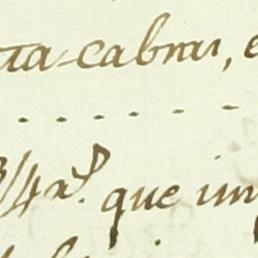 ta cabras, e
3/4 rs. que im